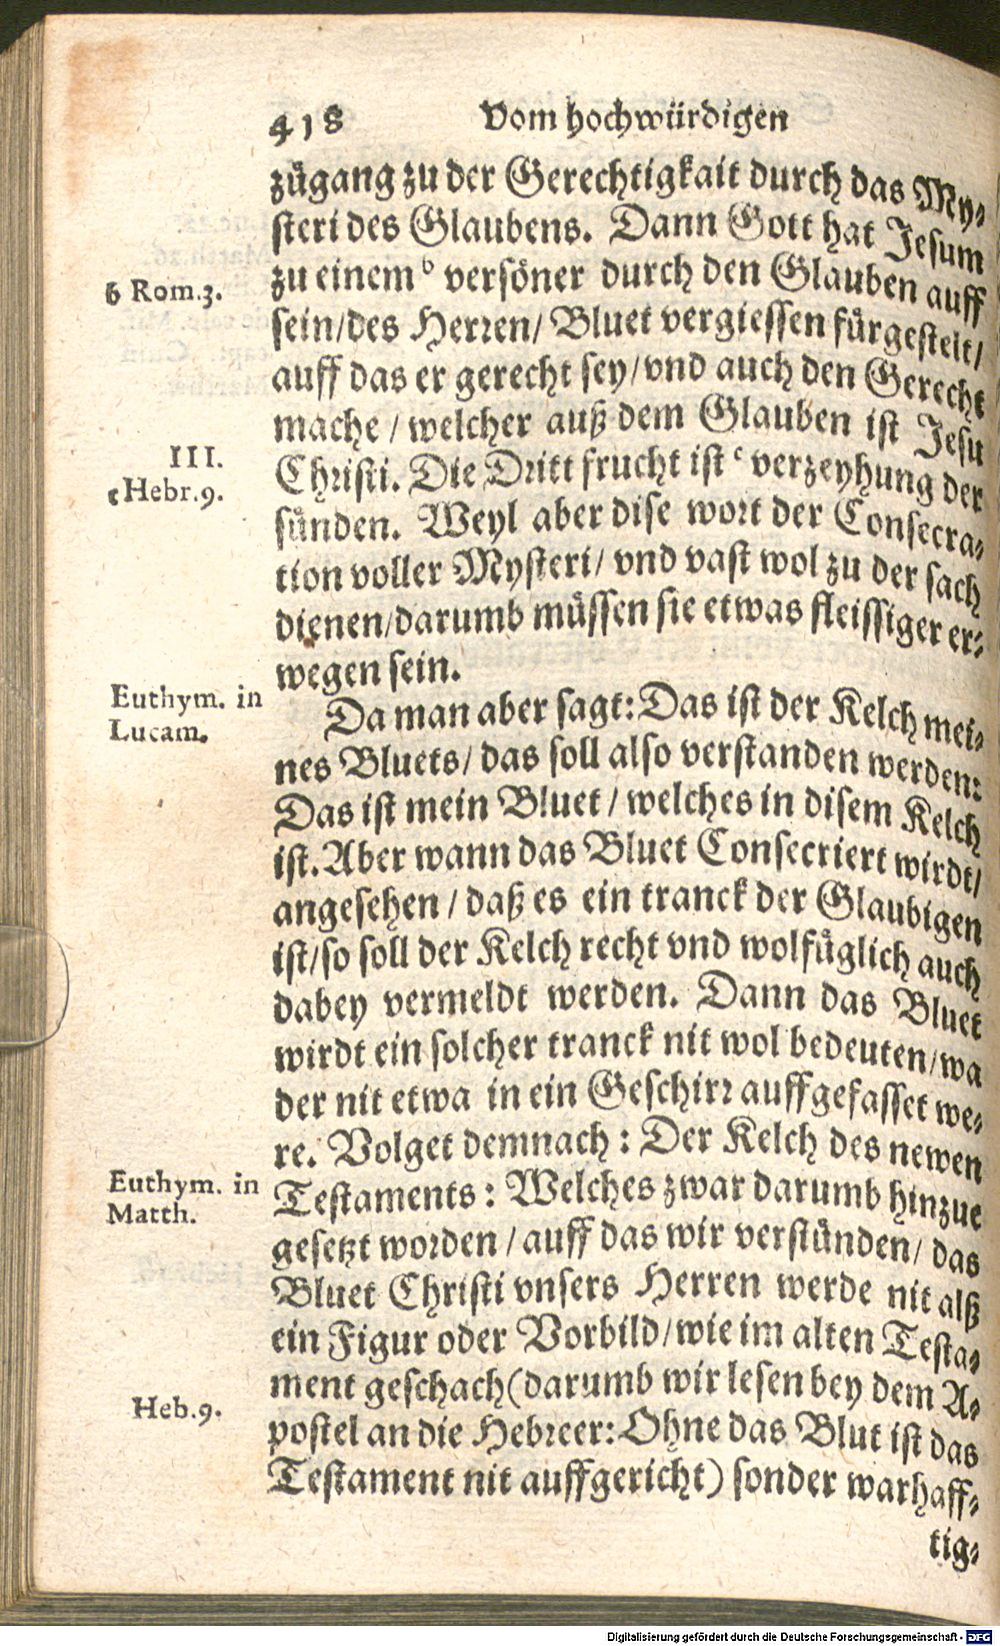 418 Vom hochwürdigen
zůgang zu der Gerechtigkait durch das My-
steri des Glaubens. Dann Gott hat Jesum
zu einem b versöner durch den Glauben auff
b Rom.3.
sein/des Herren/ Bluet vergiessen fürgestelt/
auff das er gerecht sey/vnd auch den Gerecht
mache / welcher auß dem Glauben ist Jesu
III.
Christi. Die Dritt frucht ist c verzeyhung der
c Hebr.9.
sünden. Weyl aber dise wort der Consecra-
tion voller Mysteri/ vnd vast wol zu der sach
dienen/darumb müssen sie etwas fleissiger er-
wegen sein.
Euthym. in
Lucam.
Da man aber sagt: Das ist der Kelch mei-
nes Bluets/ das soll also verstanden werden:
Das ist mein Bluet / welches in disem Kelch
ist. Aber wann das Bluet Consecriert wirdt/
angesehen / daß es ein tranck der Glaubigen
ist/so soll der Kelch recht vnd wolfüglich auch
dabey vermeldt werden. Dann das Bluet
wirdt ein solcher tranck nit wol bedeuten/wa
der nit etwa in ein Geschirr auffgefasset we-
re. Volget demnach : Der Kelch des newen
Euthym. in
Matth.
Testaments : Welches zwar darumb hinzue
gesetzt worden / auff das wir verstünden/ das
Bluet Christi vnsers Herren werde nit alß
ein Figur oder Vorbild/wie im alten Testa-
ment geschach (darumb wir lesen bey dem A-
Heb.9.
postel an die Hebreer: Ohne das Blut ist das
Testament nit auffgericht) sonder warhaff-
tig-
Digitalisierung gefördert durch die Deutsche Forschungsgemeinschaft - DFG